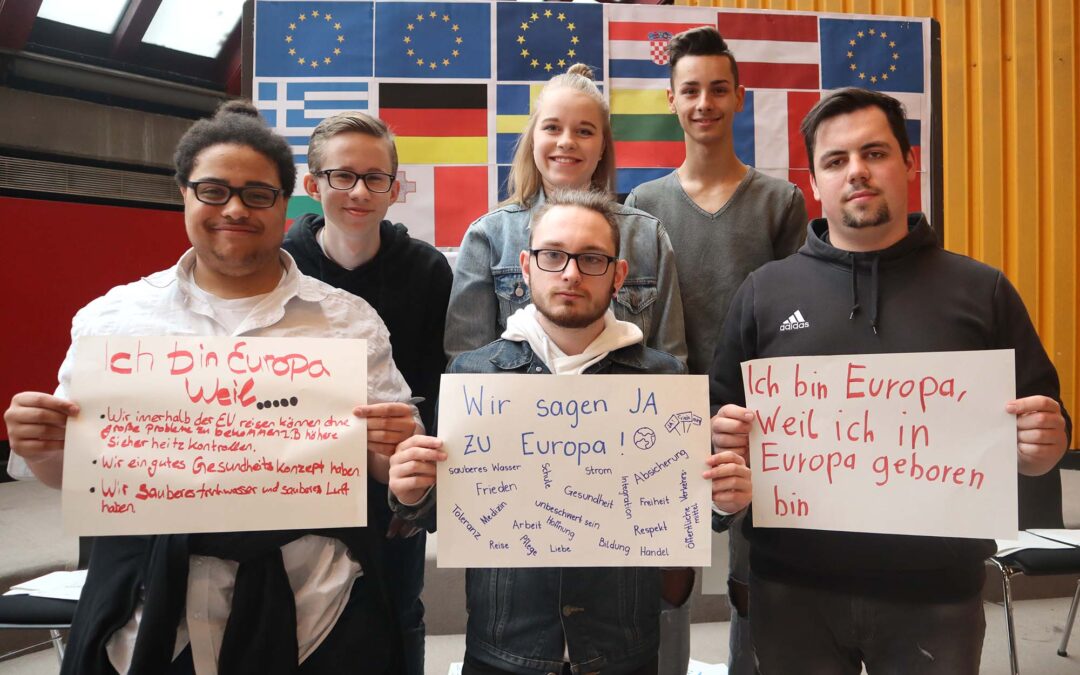 Ich bin Europa
Weil.....
• Wir innerhalb der EU reisen können ohne
große probleme zu bekommen z.B höhere
Sicherheitz kontrollen.
• Wir ein gutes Gesundheitskonzept haben
• Wir sauberes trinkwasser und sauberes Luft
haben
Wir sagen JA
zu Europa!
sauberes Wasser
Schule
Strom
Absicherung
Frieden
Gesundheit
Integration
Freiheit
Öffentliche Verkehrs-
mittel
Toleranz
Medizin
unbeschwert sein
Arbeit
Hoffnung
Respekt
Reise
Pflege
Liebe
Bildung
Handel
adidas
Ich bin Europa,
Weil ich in
Europa geboren
bin